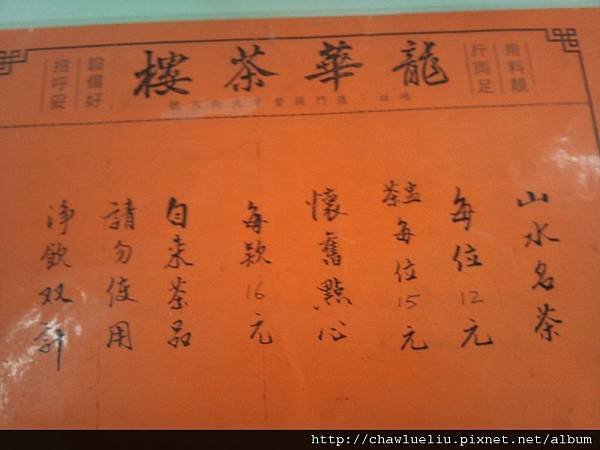 龍華茶樓
用料靚
斤両足
設備好
招呼妥
山水名茶
每位12元
盅茶每位15元
懷舊點心
每款16元
自来茶品
請勿使用
淨飲双計
http://chawlueliu.pixnet.net/album